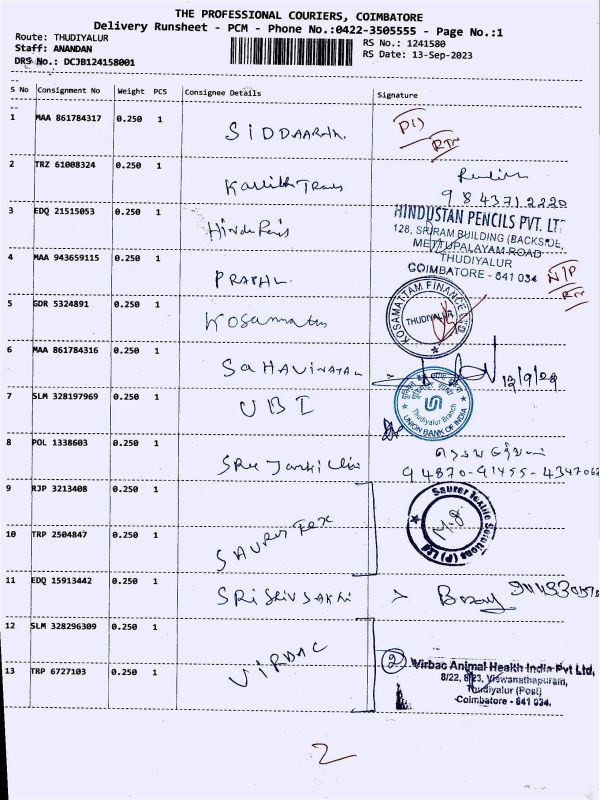 THE PROFESSIONAL COURIERS, COIMBATORE
Delivery Runsheet - PCM - Phone No.:0422-3505555 - Page No.:1
Route: THUDIYALUR
Staff: ANANDAN
DRS No.: DCJB124158001
RS No.: 1241580
RS Date: 13-Sep-2023
S No Consignment No Weight PCS Consignee Details Signature
1 MAA 861784317 0.250 1 SIDDAARTH.
RTN
2 TRZ 61008324 0.250 1 Karthik Trans
9843712220
3 EDQ 21515053 0.250 1
HINDUSTAN PENCILS PVT. LT
128, SRIRAM BUILDING (BACKSIDE,
METTUPALAYAM ROAD
THUDIYALUR
COIMBATORE - 641 034
4 MAA 943659115 0.250 1
N/P
RTN
5 GDR 5324891 0.250 1
KOSAMATTAM FINANCE
THUDIYALUR
6 MAA 861784316 0.250 1
7 SLM 328197969 0.250 1 UBI
UNION BANK OF INDIA
Thudiyalur Branch
8 POL 1338603 0.250 1
9 RJP 3213408 0.250 1
10 TRP 2504847 0.250 1 SAURER TEX
Saurer Textile Solutions (P) Ltd
11 EDQ 15913442 0.250 1
12 SLM 328296309 0.250 1
13 TRP 6727103 0.250 1 VIRBAC
2
Virbac Animal Health India Pvt Ltd,
8/22, 8/23, Viswanathapuram,
Thudiyalur (Post)
Coimbatore - 641 034.
2